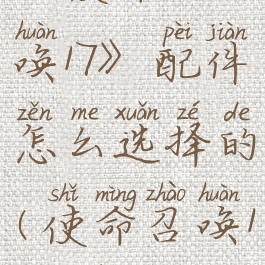 huàn pèi jiàn
唤17》 配件
zěn me xuǎn zé de
怎么选择的
shǐ mìng zhào huàn
(使命召唤1